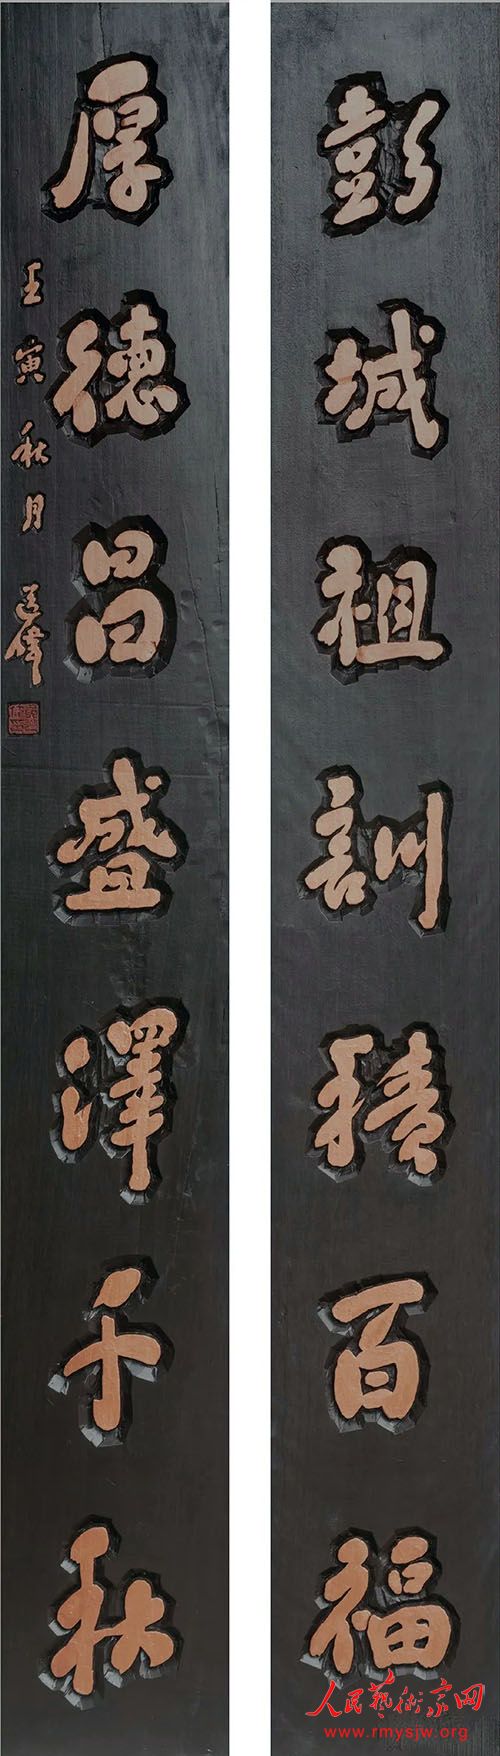 彭城祖訓積百福
厚德昌盛澤千秋
壬寅秋月
人民藝術家网
www.rmysjw.org